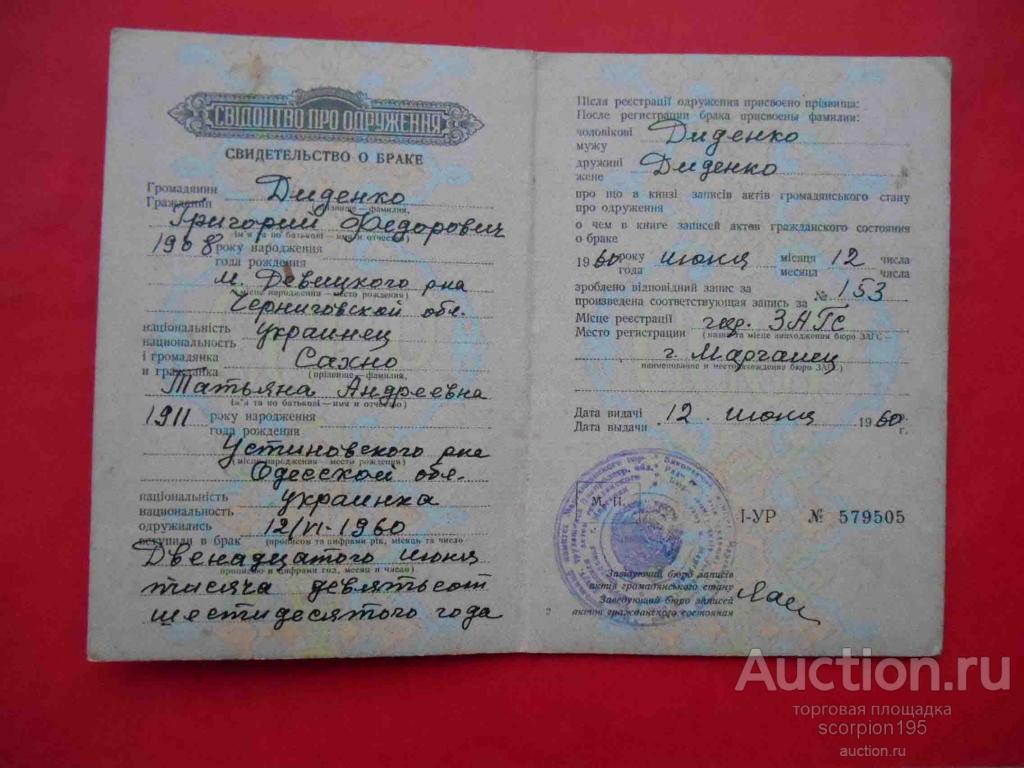 СВІДОЦТВО ПРО ОДРУЖЕННЯ
СВИДЕТЕЛЬСТВО О БРАКЕ
Громадянин
Гражданин
Диденко
(прізвище — фамилия,
Григорий Федорович
ім'я та по батькові — имя и отчество)
1908 року народження
года рождения
м. Девицкого р-на
(місце народження — место рождения)
Черниговской обл.
національність
национальность
украинец
і громадянка
и гражданка
Сахно
(прізвище — фамилия,
Татьяна Андреевна
ім'я та по батькові — имя и отчество)
1911 року народження
года рождения
Устиновского р-на
(місце народження — место рождения)
Одесской обл.
національність
национальность
украинка
одружились
вступили в брак
12/VI-1960
(прописом та цифрами рік, місяць та число
Двенадцатого июня
прописью и цифрами год, месяц и число)
тысяча девятьсот
шестидесятого года
Після реєстрації одруження присвоєно прізвища:
После регистрации брака присвоены фамилии:
чоловікові
мужу
Диденко
дружині
жене
Диденко
про що в книзі записів актів громадянського стану
про одруження
о чем в книге записей актов гражданского состояния
о браке
1960 року июня місяця 12 числа
года месяца числа
зроблено відповідний запис за
произведена соответствующая запись за № 153
Місце реєстрації
Место регистрации
гор. ЗАГС
(назва та місце знаходження бюро ЗАГС —
г. Марганец
наименование и местонахождение бюро ЗАГС)
Дата видачі
Дата выдачи
12 июня 1960 р.
г.
М. П.
I-УР № 579505
Завідуючий бюро записів
актів громадянського стану
Заведующий бюро записей
актов гражданского состояния
Auction.ru
торговая площадка
scorpion195
auction.ru